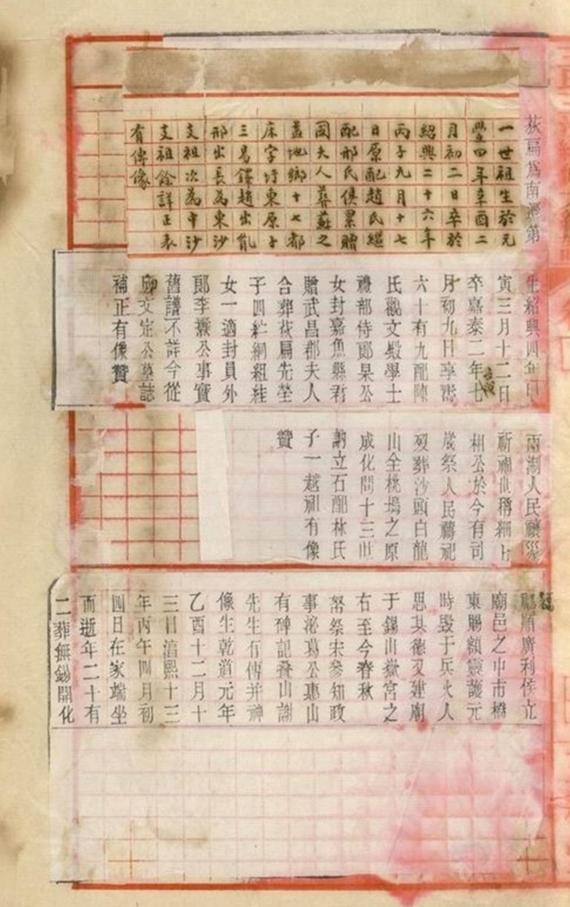 荻扁爲南遷第
一世祖生於元
豐四年辛酉二
月初二日卒於
紹興二十六年
丙子九月十七
日原配趙氏繼
配邢氏俱累贈
國夫人葬蘇之
盖地鄉十七都
床字圩東原子
三易鐸趙出
邢出長爲東沙
支祖次爲中沙
支祖餘詳正表
有傳像
生紹興四年甲
寅三月十二日
卒嘉泰二年七
月初九日享壽
六十有九配陳
氏觀文殿學士
禮部侍郎杲公
女封嘉魚縣君
贈武昌郡夫人
合葬荻扁先塋
子四綱組絓
女一適封員外
郎李燾公事實
舊譜不詳今從
文定公墓誌
補正有像贊
兩湖人民禳災
祈福世稱細七
相公於今有司
歲祭人民禱祀
歿葬沙頭白龍
山全桃塢之原
成化間十三世
訥立石配林氏
子一越祖有像
贊
順廣利侯立
廟邑之中市橋
東賜額靈護元
時毀于兵火人
思其德又建廟
于錫山嶽宮之
右至今春秋
祭宋參知政
事泌葛公惠山
有碑記疊山謝
先生有傳并神
像生乾道元年
乙酉十二月十
三日淳熙十三
年丙午四月初
四日在家端坐
而逝年二十有
二葬無錫開化